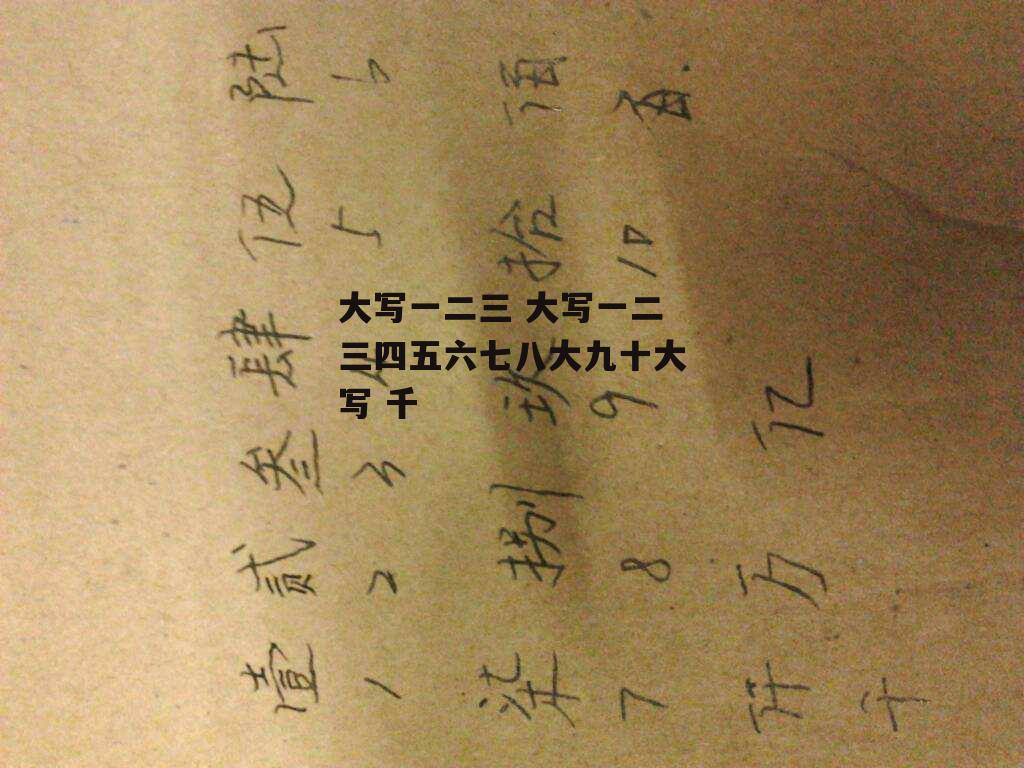 大写一二三 大写一二
三四五六七八大九十大
写 千
壹 贰 叁 肆 伍 陆
1 2 3 4 5 6
柒 捌 玖 拾 佰
7 8 9 10 百.
仟 万 亿
千